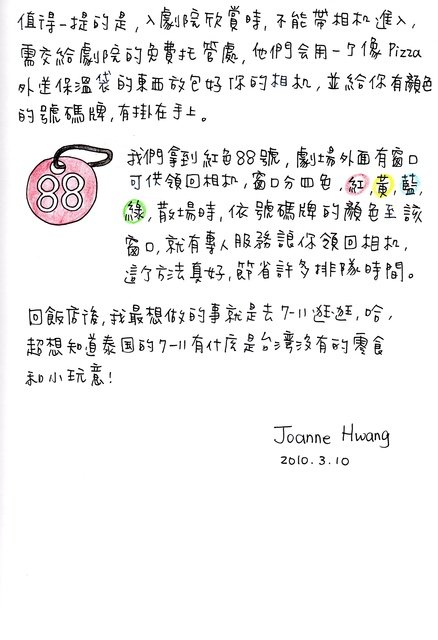 值得一提的是,入劇院欣賞時,不能帶相机進入,
需交給劇院的免費托管處,他們会用一个像Pizza
外送保溫袋的東西放包好你的相机,並給你有顏色
的號碼牌,有掛在手上。
88
我們拿到紅色88號,劇場外面有窗口
可供領回相机,窗口分四色,紅,黃,藍,
綠,散場時,依號碼牌的顏色至該
窗口,就有專人服務讓你領回相机,
這个方法真好,節省許多排隊時間。
回飯店後,我最想做的事就是去7-11逛逛,哈,
超想知道泰国的7-11有什庅是台灣沒有的零食
和小玩意!
Joanne Hwang
2010.3.10